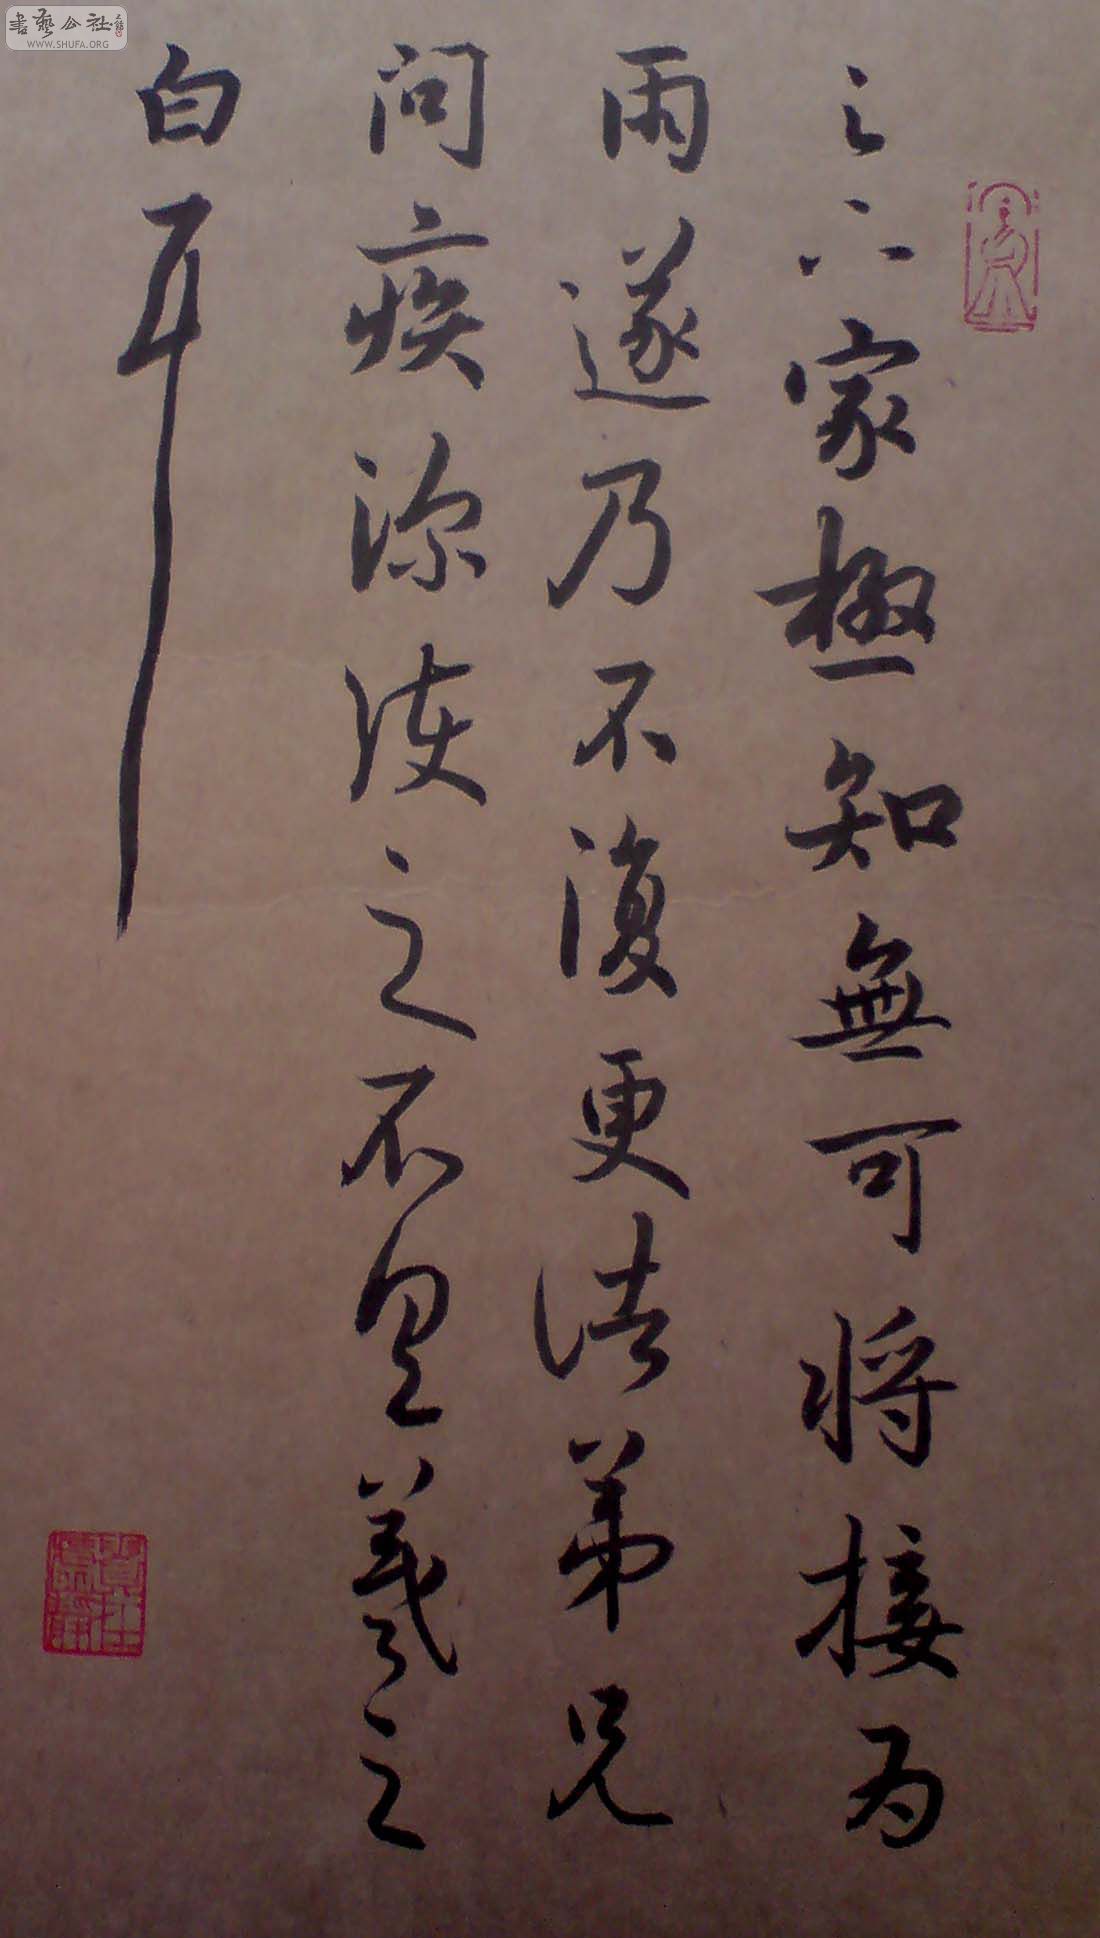 之六家極知無可將接為
雨遂乃不復更諸弟兄
問疾深之不具羲之
白耳
書藝公社
WWW.SHUFA.ORG